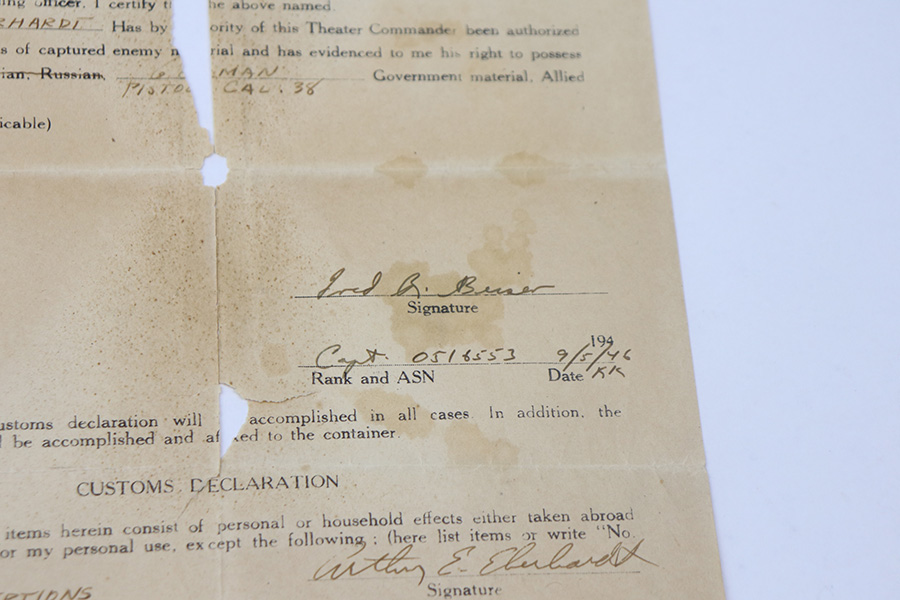 officer, I certify he above named.
RHARDT Has by ority of this Theater Commander been authorized
s of captured enemy rial and has evidenced to me his right to possess
ian, Russian, MAN Government material, Allied
PISTOL CAL. 38
icable)
Fred Beiser
Signature
194
Capt. 0516553 9/5/46
Rank and ASN Date KK
ustoms declaration will accomplished in all cases. In addition, the
be accomplished and af ed to the container.
CUSTOMS DECLARATION
items herein consist of personal or household effects either taken abroad
or my personal use, except the following; (here list items or write "No
Arthur E. Eberhardt
PTIONS
Signature